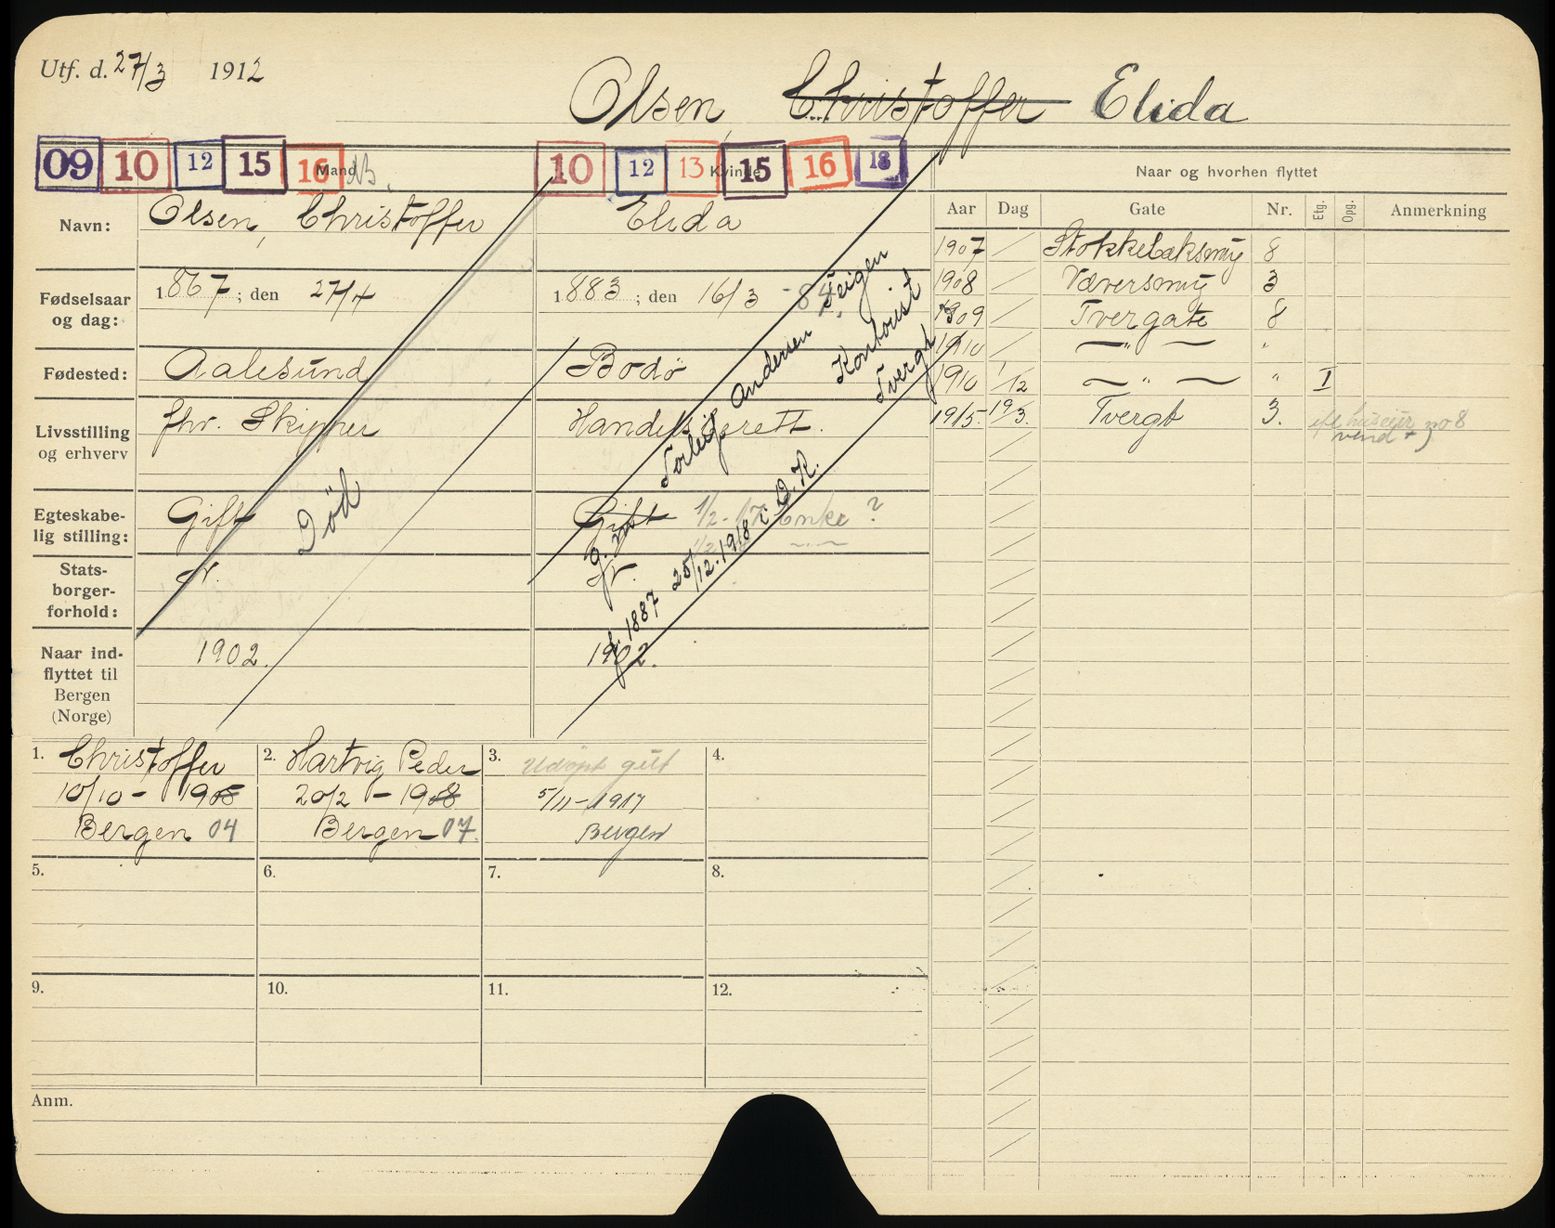 Utf. d. 27/3 1912
Olsen, Christoffer Elida
09 10 12 15 16 Mand
10 12 13 Kvinde 15 16 18
Naar og hvorhen flyttet
Navn: Olsen, Christoffer Elida
Aar Dag Gate Nr. Etg. Opg. Anmerkning
1907 Stokkebæksmug 8
1908 Væversmug 3
1909 Tvergate 8
1910 — " — "
1910 1/12 — " — " I
1915 19/3. Tvergt 3. no 8
vend
Fødselsaar og dag: 1867; den 27/4 1883; den 16/3 -84.
Fødested: Aalesund Bodö
Livsstilling og erhverv fhv. Skipper Handelsborett.
Egteskabelig stilling: Gift Gift 1/2-17 Enke ?
Død
Statsborgerforhold: n. n.
Naar indflyttet til Bergen (Norge) 1902. 1902.
g. m. Torleif Andersen Teigen
Kontorist
Tvergt
f. 1887 20/12.1918 i D.K.
1. Christoffer
10/10 - 1905
Bergen 04
2. Hartvig Peder
20/2 - 1908
Bergen 07.
3. Udöpt gut
5/11-1917
Bergen
4.
5.
6.
7.
8.
9.
10.
11.
12.
Anm.